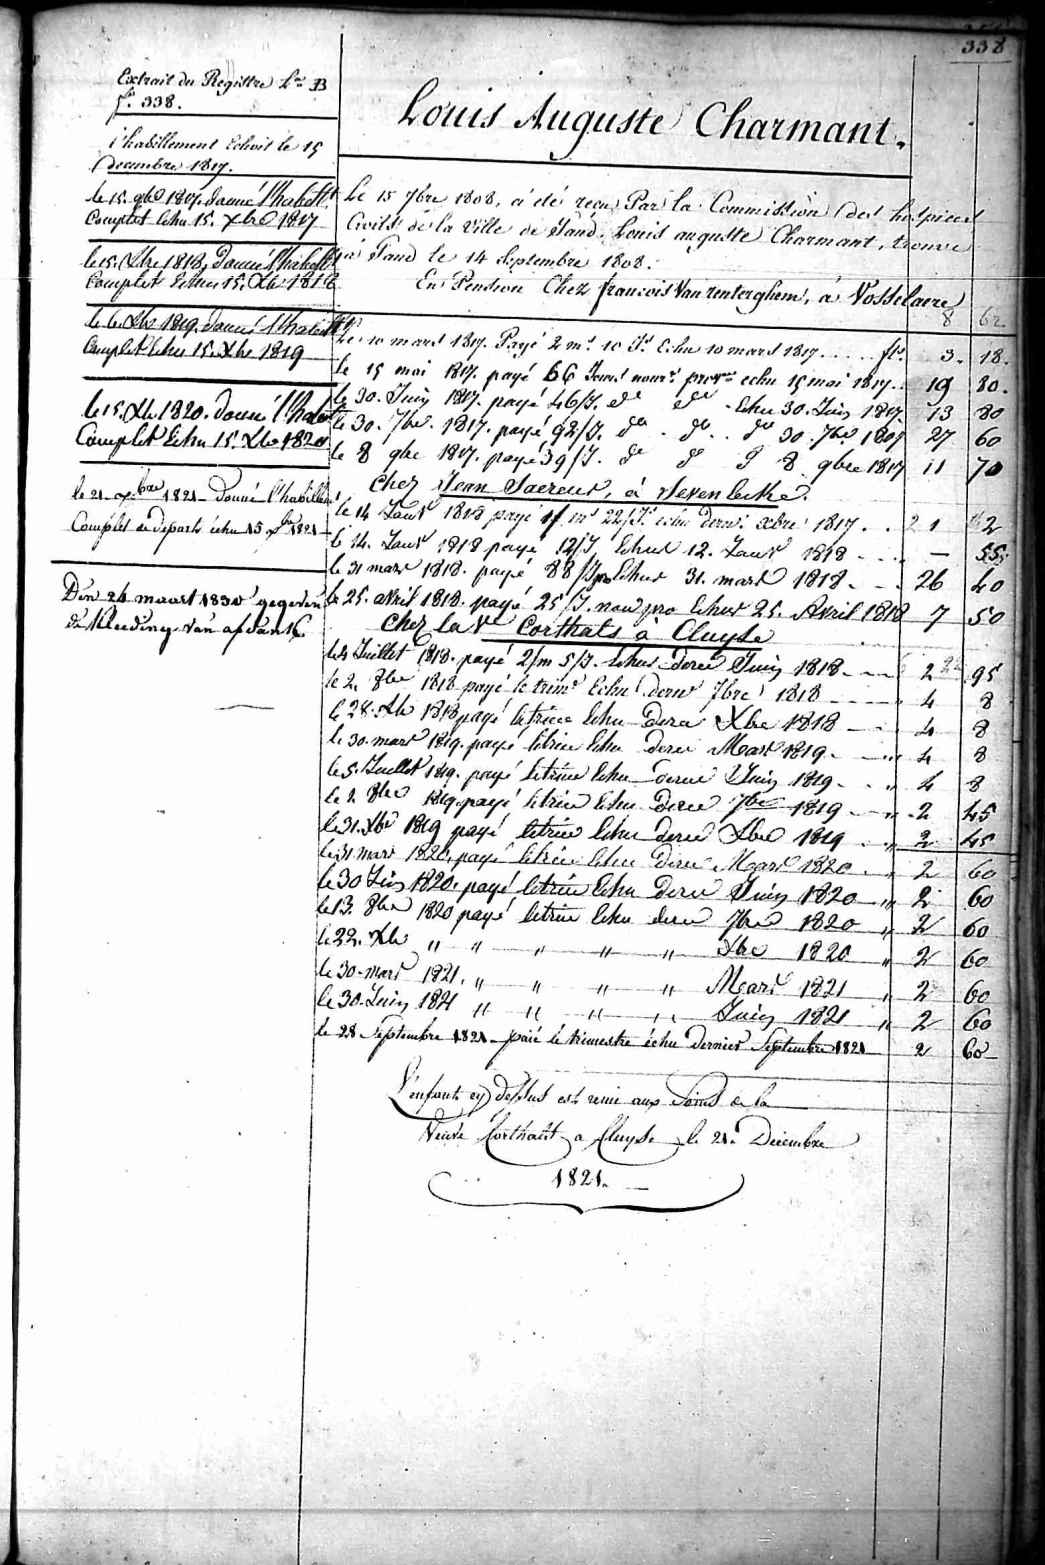 338
Extrait du Registre Lre B
fo. 338.
l'habillement Echoit le 15
Decembre 1817.
le 15. 1817. donné l'habillt
Complet Echu 15. Xbre 1817
le 15. Xbre 1818, donné l'habillt
Complet Echu 15. Xbre 1818
le 6. Xbre 1819. donné l'habillt
Complet Echu 15. Xbre 1819
le 15. Xbre 1820. donné l'habillt
Complet Echu 15. Xbre 1820
le 21 Xbre 1821 - Donné l'habillemt
Complet de depart échu 15 1821
Den 24 maart 1830 gegeven
de Kleeding van
Louis Auguste Charmant.
Le 15 7bre 1808, a été recu Par la Commission des hospices
Civils de la Ville de Gand. Louis auguste Charmant, trouvé
à Gand le 14 Septembre 1808.
En Pension Chez francois Van renterghem, à Vosselaere
8 62
Le 10 mars 1817. Payé 2 ms. 10 Js. Echu 10 mars 1817 . . . . fls. 3. 18.
le 15 mai 1817. payé 66 Jours nourre. echu 15 mai 1817 . . 19 80.
le 30. Juin 1817. payé 46/J. do do Echu 30. Juin 1817 13 80
le 30. 7bre. 1817. payé 92/J. do . do . . do 30. 7bre 1817 27 60
le 8 9bre 1817. payé 39/J. do do do 8 9bre 1817 11 70
Chez Jean Saereus, à Sevenecke.
le 14 Janvr 1818 payé 1 m. 22/Js. echu dernr. xbre 1817 . . 21 2
le 14. Janvr 1818 payé 12/J Echus 12. Janvr 1818 - . . . — 55
le 31 mars 1818. payé 88/J Echus 31. mars 1818 - . . 26 40
le 25. avril 1818. payé 25/J. Echus 25. Avril 1818 7 50
Chez la Ve Corthals à Cluyse
le 4 Juillet 1818. payé 2/m 5/J. Echus derer Juin 1818 - . . 2 95
le 2. 8bre 1818 payé le trime Echu dernr 7bre 1818 . . . . 4 8
le 28. Xbre 1818 payé letrime Echu derer Xbre 1818 - . . 4 8
le 30. mars 1819. payé letrime Echu derer Mars 1819 . . " 4 8
le 5. Juillet 1819. payé letrime Echu derer Juin 1819 . . " 4 8
le 2. 8bre 1819 payé letrime Echu derer 7bre 1819 " 2 45
le 31. Xbre 1819 payé letrime Echu derer Xbre 1819 . " 2 45
le 31 mars 1820, payé letrime Echu derer Mars 1820 . " 2 60
le 30 Juin 1820. payé letrime Echu derer Juin 1820 " 2 60
le 13. 8bre 1820 payé letrime Echu derer 7bre 1820 " 2 60
le 22. Xbre " " " " " Xbre 1820 " 2 60
le 30. mars 1821. " " " " Mars 1821 " 2 60
le 30. Juin 1821 " " " " Juin 1821 " 2 60
le 28 Septembre 1821 - paié le trimestre échu dernier Septembre 1821 2 60
L'enfant ci dessus est remi aux Soins de la
Veuve Corthals a Cluyse le 21 Decembre
1821.